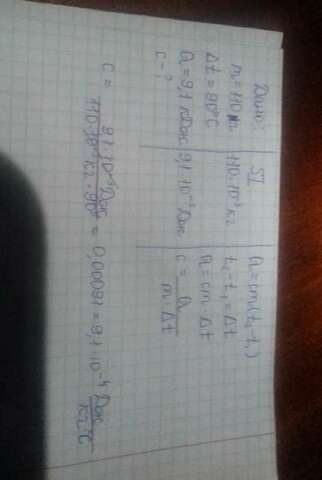 Дано:
m=110 г
Δt=90°C
Q=9,1 кДж
c-?
SI
110·10⁻³ кг
9,1·10⁻³ Дж
Q=cm(t₂-t₁)
t₂-t₁=Δt
Q=cm Δt
c = Q / m·Δt
c = 9,1·10⁻³ Дж / 110·10⁻³ кг·90° = 0,00091=9,1·10⁻⁴ Дж / кг°C